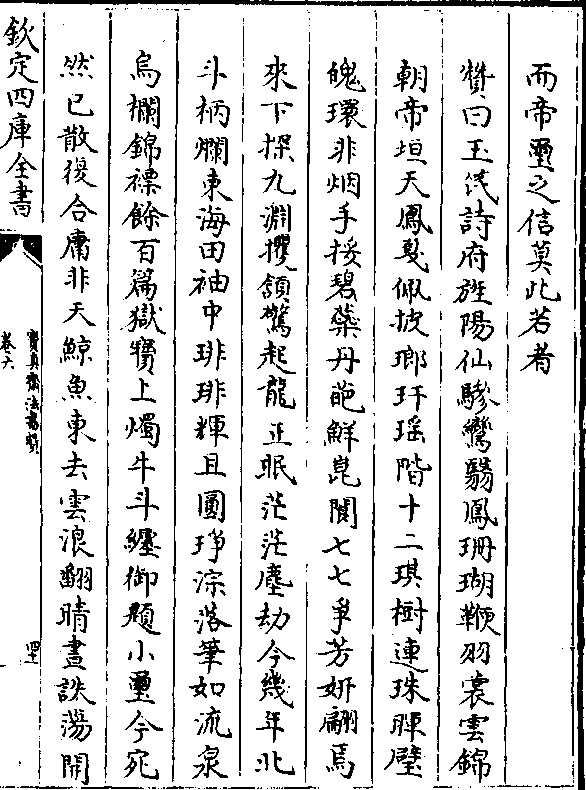 而帝璽之信莫此若者
贊曰玉氏詩府旌陽仙驂鸞翳鳳珊瑚鞭羽裳雲錦
朝帝垣天鳳戛佩披瑯玕瑤階十二琪樹連珠暉璧
媿環非烟手挼碧藥丹葩鮮崑閬七七爭芳妍翩焉
來下探九淵攫頷驚起龍正眠茫茫塵劫今幾年北
斗柄爛東海田袖中琲琲輝且圓琤淙落筆如流泉
烏欄錦褾餘百篇嶽寶上燭牛斗纏御題小璽今宛
然已散復合庸非天鯨魚東去雲浪翻晴晝詄蕩開
欽定四庫全書
寶真齋法書贊
卷六